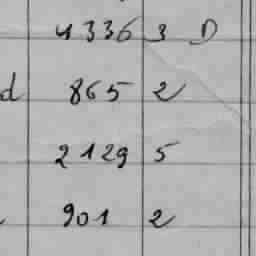 4336 3 D
d 865 2
2129 5
901 2